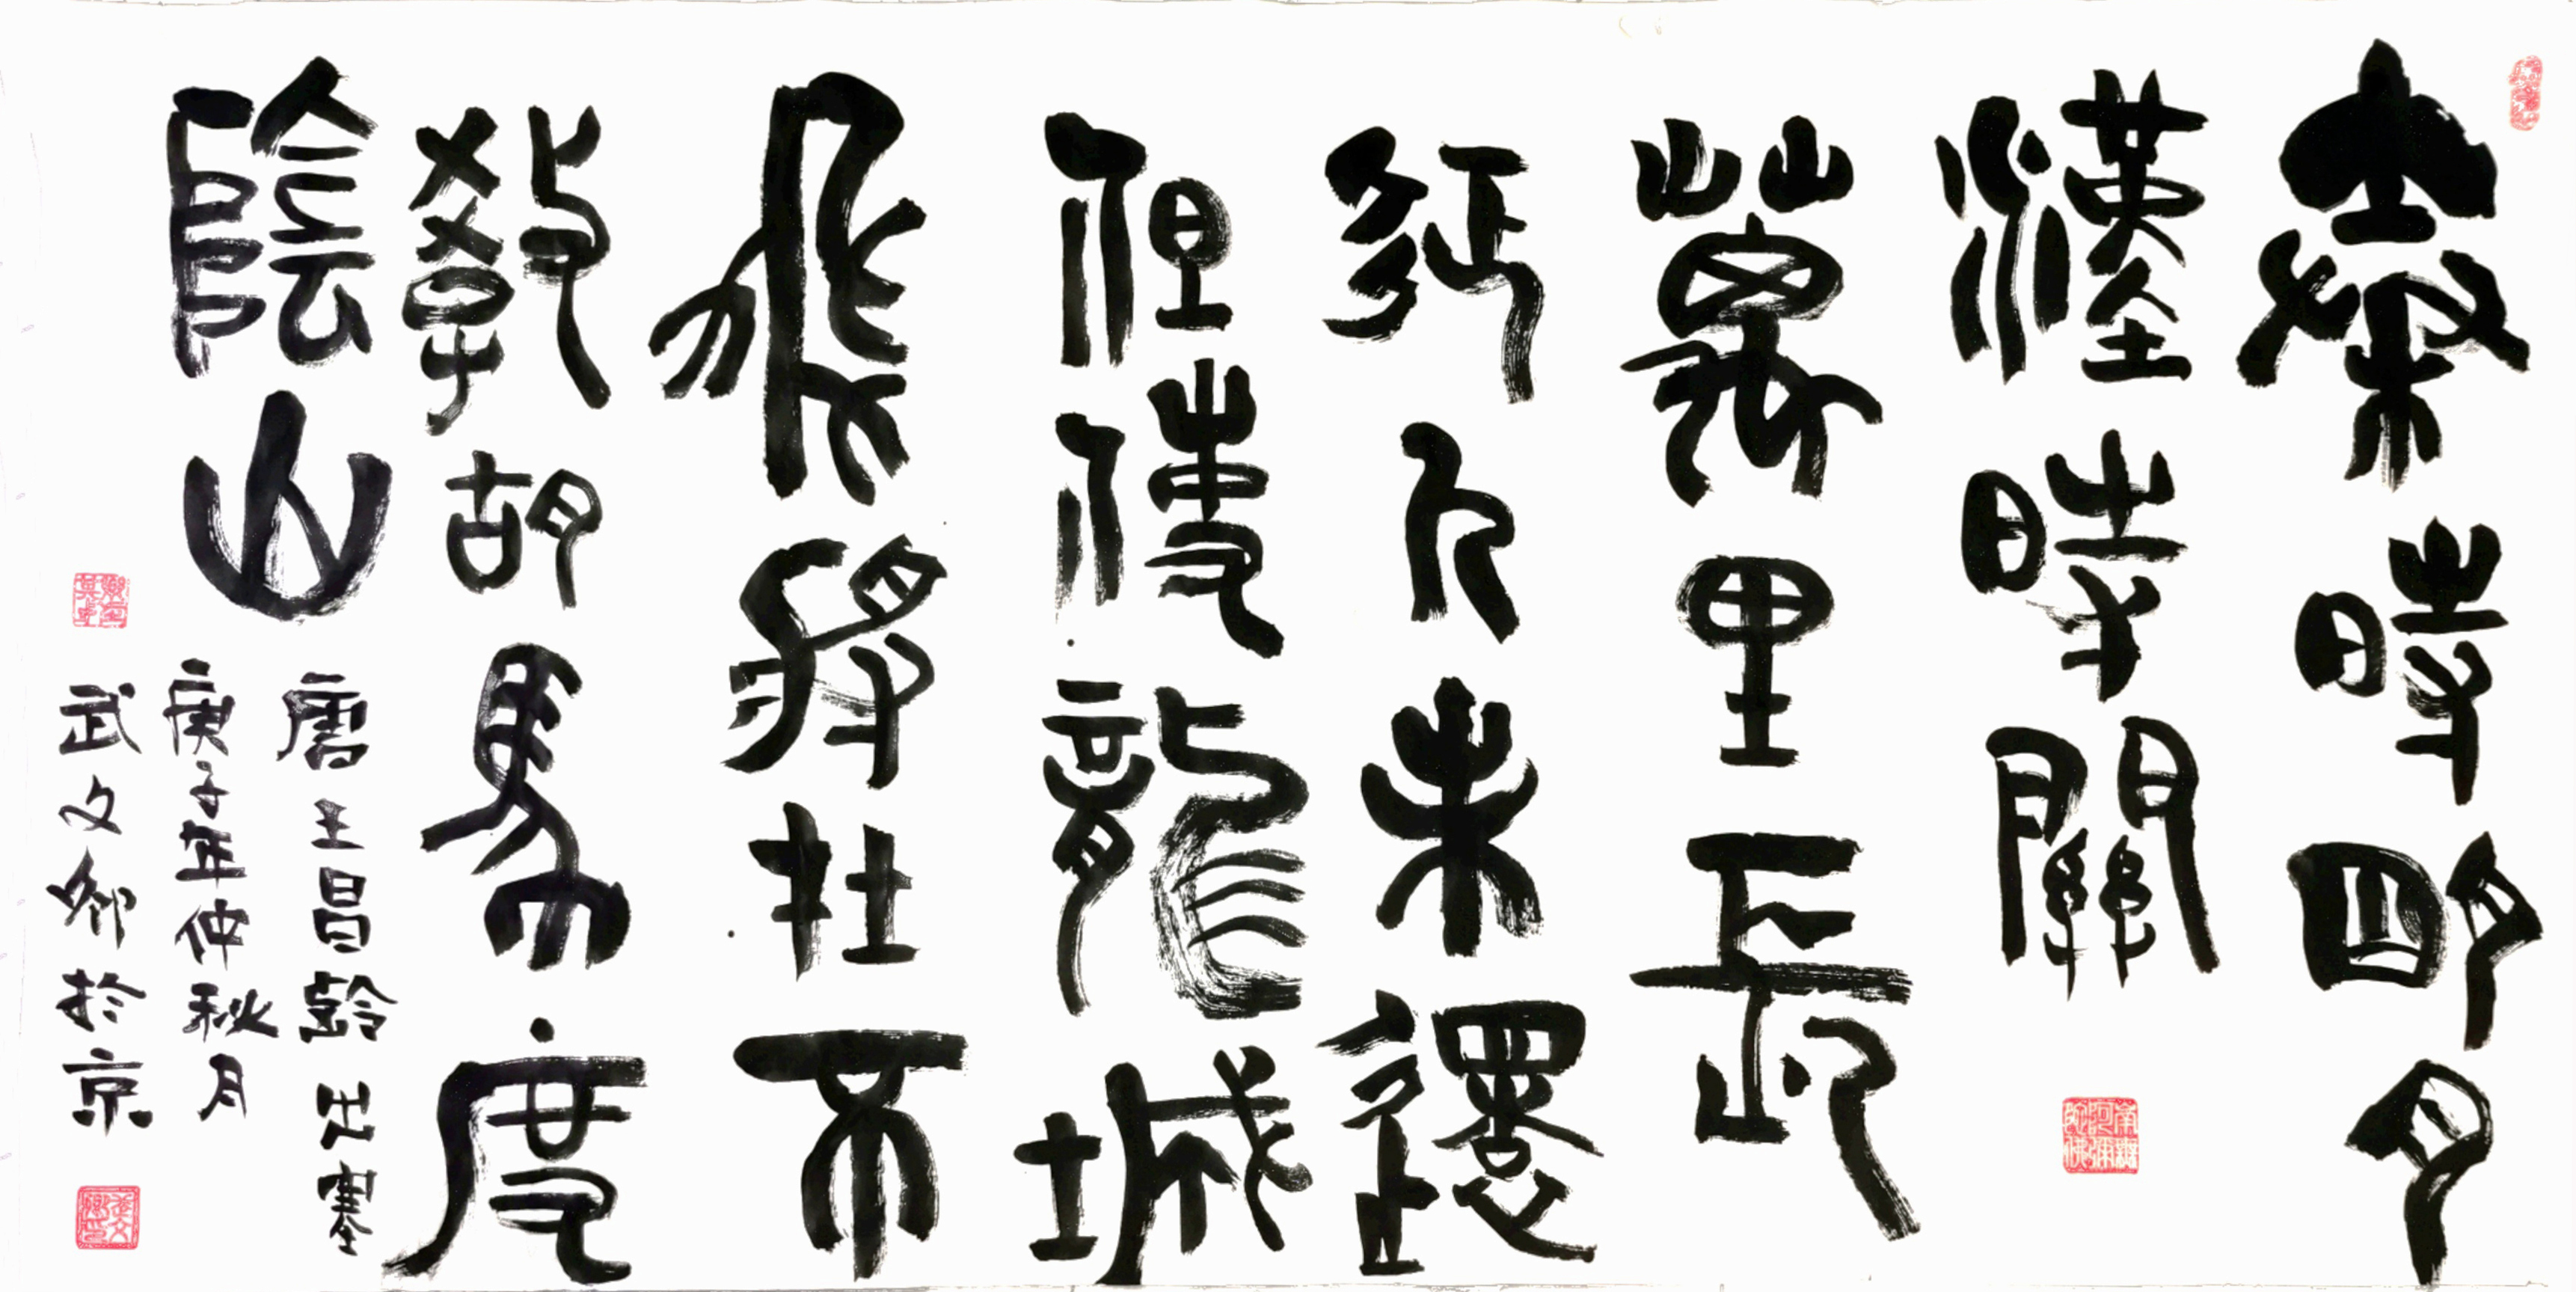 秦時明月
漢時關
南無阿彌陀佛
萬里長
征人未還
但使龍城
飛將在不
教胡馬度
陰山
唐王昌齡出塞
庚子年仲秋月
武文卿於京
武文卿印